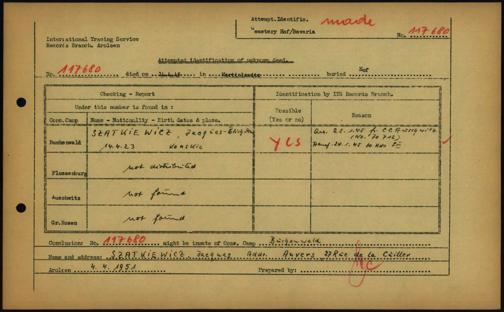 Attempt.Identific. made
International Tracing Service
Records Branch. Arolsen
Cemetery Hof/Bavaria
No. 117680
Attempted identification of unknown dead.
No. 117680 died on in Martinlamitz buried Hof
Checking - Report
Identification by ITS Records Branch.
Under this number is found in :
Possible
(Yes or no)
Reason
Conc.Camp Name - Nationality - Birth dates & place.
SZATKIEWICZ, Jacques
Buchenwald
14.4.23 Konskie
YES
25.1.45 fr. CC Auschwitz
Flossenburg not distributed
Auschwitz not found
Gr.Rosen not found
Conclusion: No. 117680 might be inmate of Conc. Camp Buchenwald
Name and address: SZATKIEWICZ Jacques Addr. Anvers Rue de la
Arolsen 4.4.1951 Prepared by: